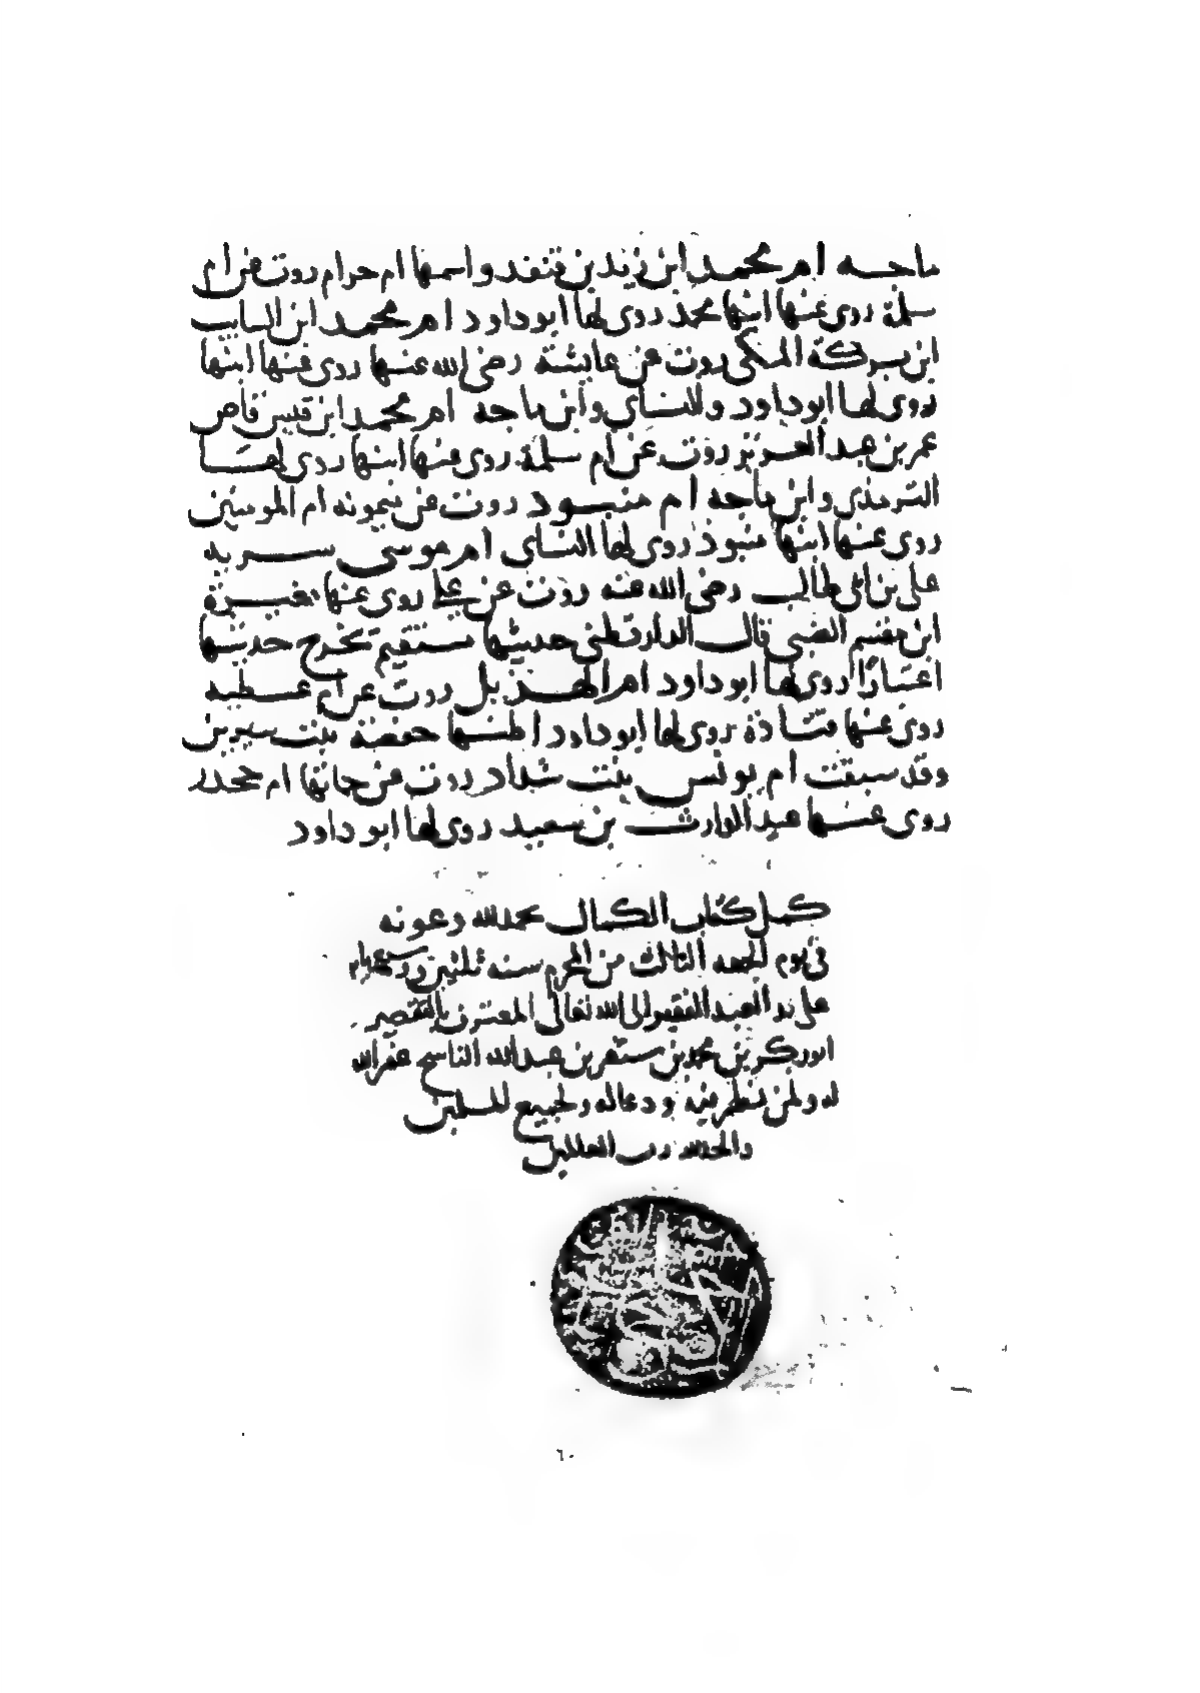 ماجه ام محمد ابن زيد بن قنفد واسمها ام حرام روت عن ام
سلمة روى عنها ابنها محمد روى لها ابوداود ام محمد ابن السايب
ابن بركة المكى روت عن عايشة رضى الله عنها روى عنها ابنها
روى لها ابوداود والنساى وابن ماجه ام محمد ابن قيس قاص
عمر بن عبد العزيز روت عن ام سلمة روى عنها ابنها روى لها
الترمذى وابن ماجه ام منبود روت عن ميمونه ام المومنين
روى عنها ابنها منبوذ روى لها النساى ام موسى سرية
على بن ابى طالب رضى الله عنه روت عن على روى عنها مغيرة
ابن مقسم الضبى قال الدارقطنى حديثها مستقيم تخرج حديثها
اعتبارا روى لها ابو داود ام الهذيل روت عن ام عطيه
روى عنها قتادة روى لها ابو داود اظنها حفصة بنت سيرين
وقد سبقت ام يونس بنت شداد روت عن حماتها ام جحدر
روى عنها عبد الوارث بن سعيد روى لها ابو داود
كمل كتاب الكمال بحمد الله وعونه
فى يوم الجمعه الثالث من المحرم سنه ثلثين وسبعمايه
على يد العبد الفقير الى الله تعالى المعترف بالتقصير
ابو بكر بن محمد بن سنقر بن عبد الله الناسخ غفر الله
له ولمن نظر فيه ودعا له ولجميع المسلمين
والحمد لله رب العالمين
٦٠